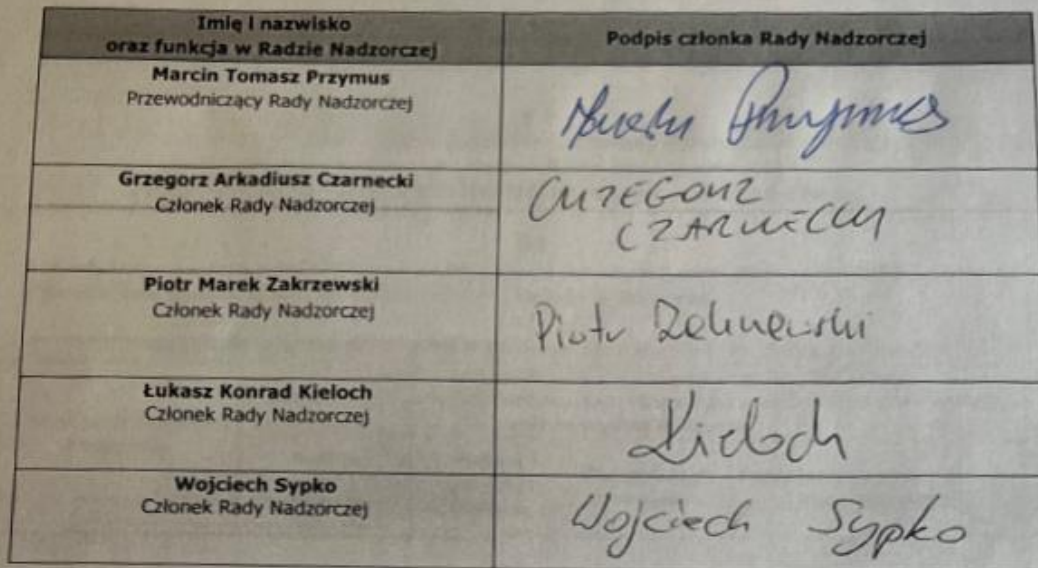 Imię i nazwisko
oraz funkcja w Radzie Nadzorczej
Podpis członka Rady Nadzorczej
Marcin Tomasz Przymus
Przewodniczący Rady Nadzorczej
Marcin Przymus
Grzegorz Arkadiusz Czarnecki
Członek Rady Nadzorczej
GRZEGORZ
CZARNECKI
Piotr Marek Zakrzewski
Członek Rady Nadzorczej
Piotr Zakrzewski
Łukasz Konrad Kieloch
Członek Rady Nadzorczej
Kieloch
Wojciech Sypko
Członek Rady Nadzorczej
Wojciech Sypko